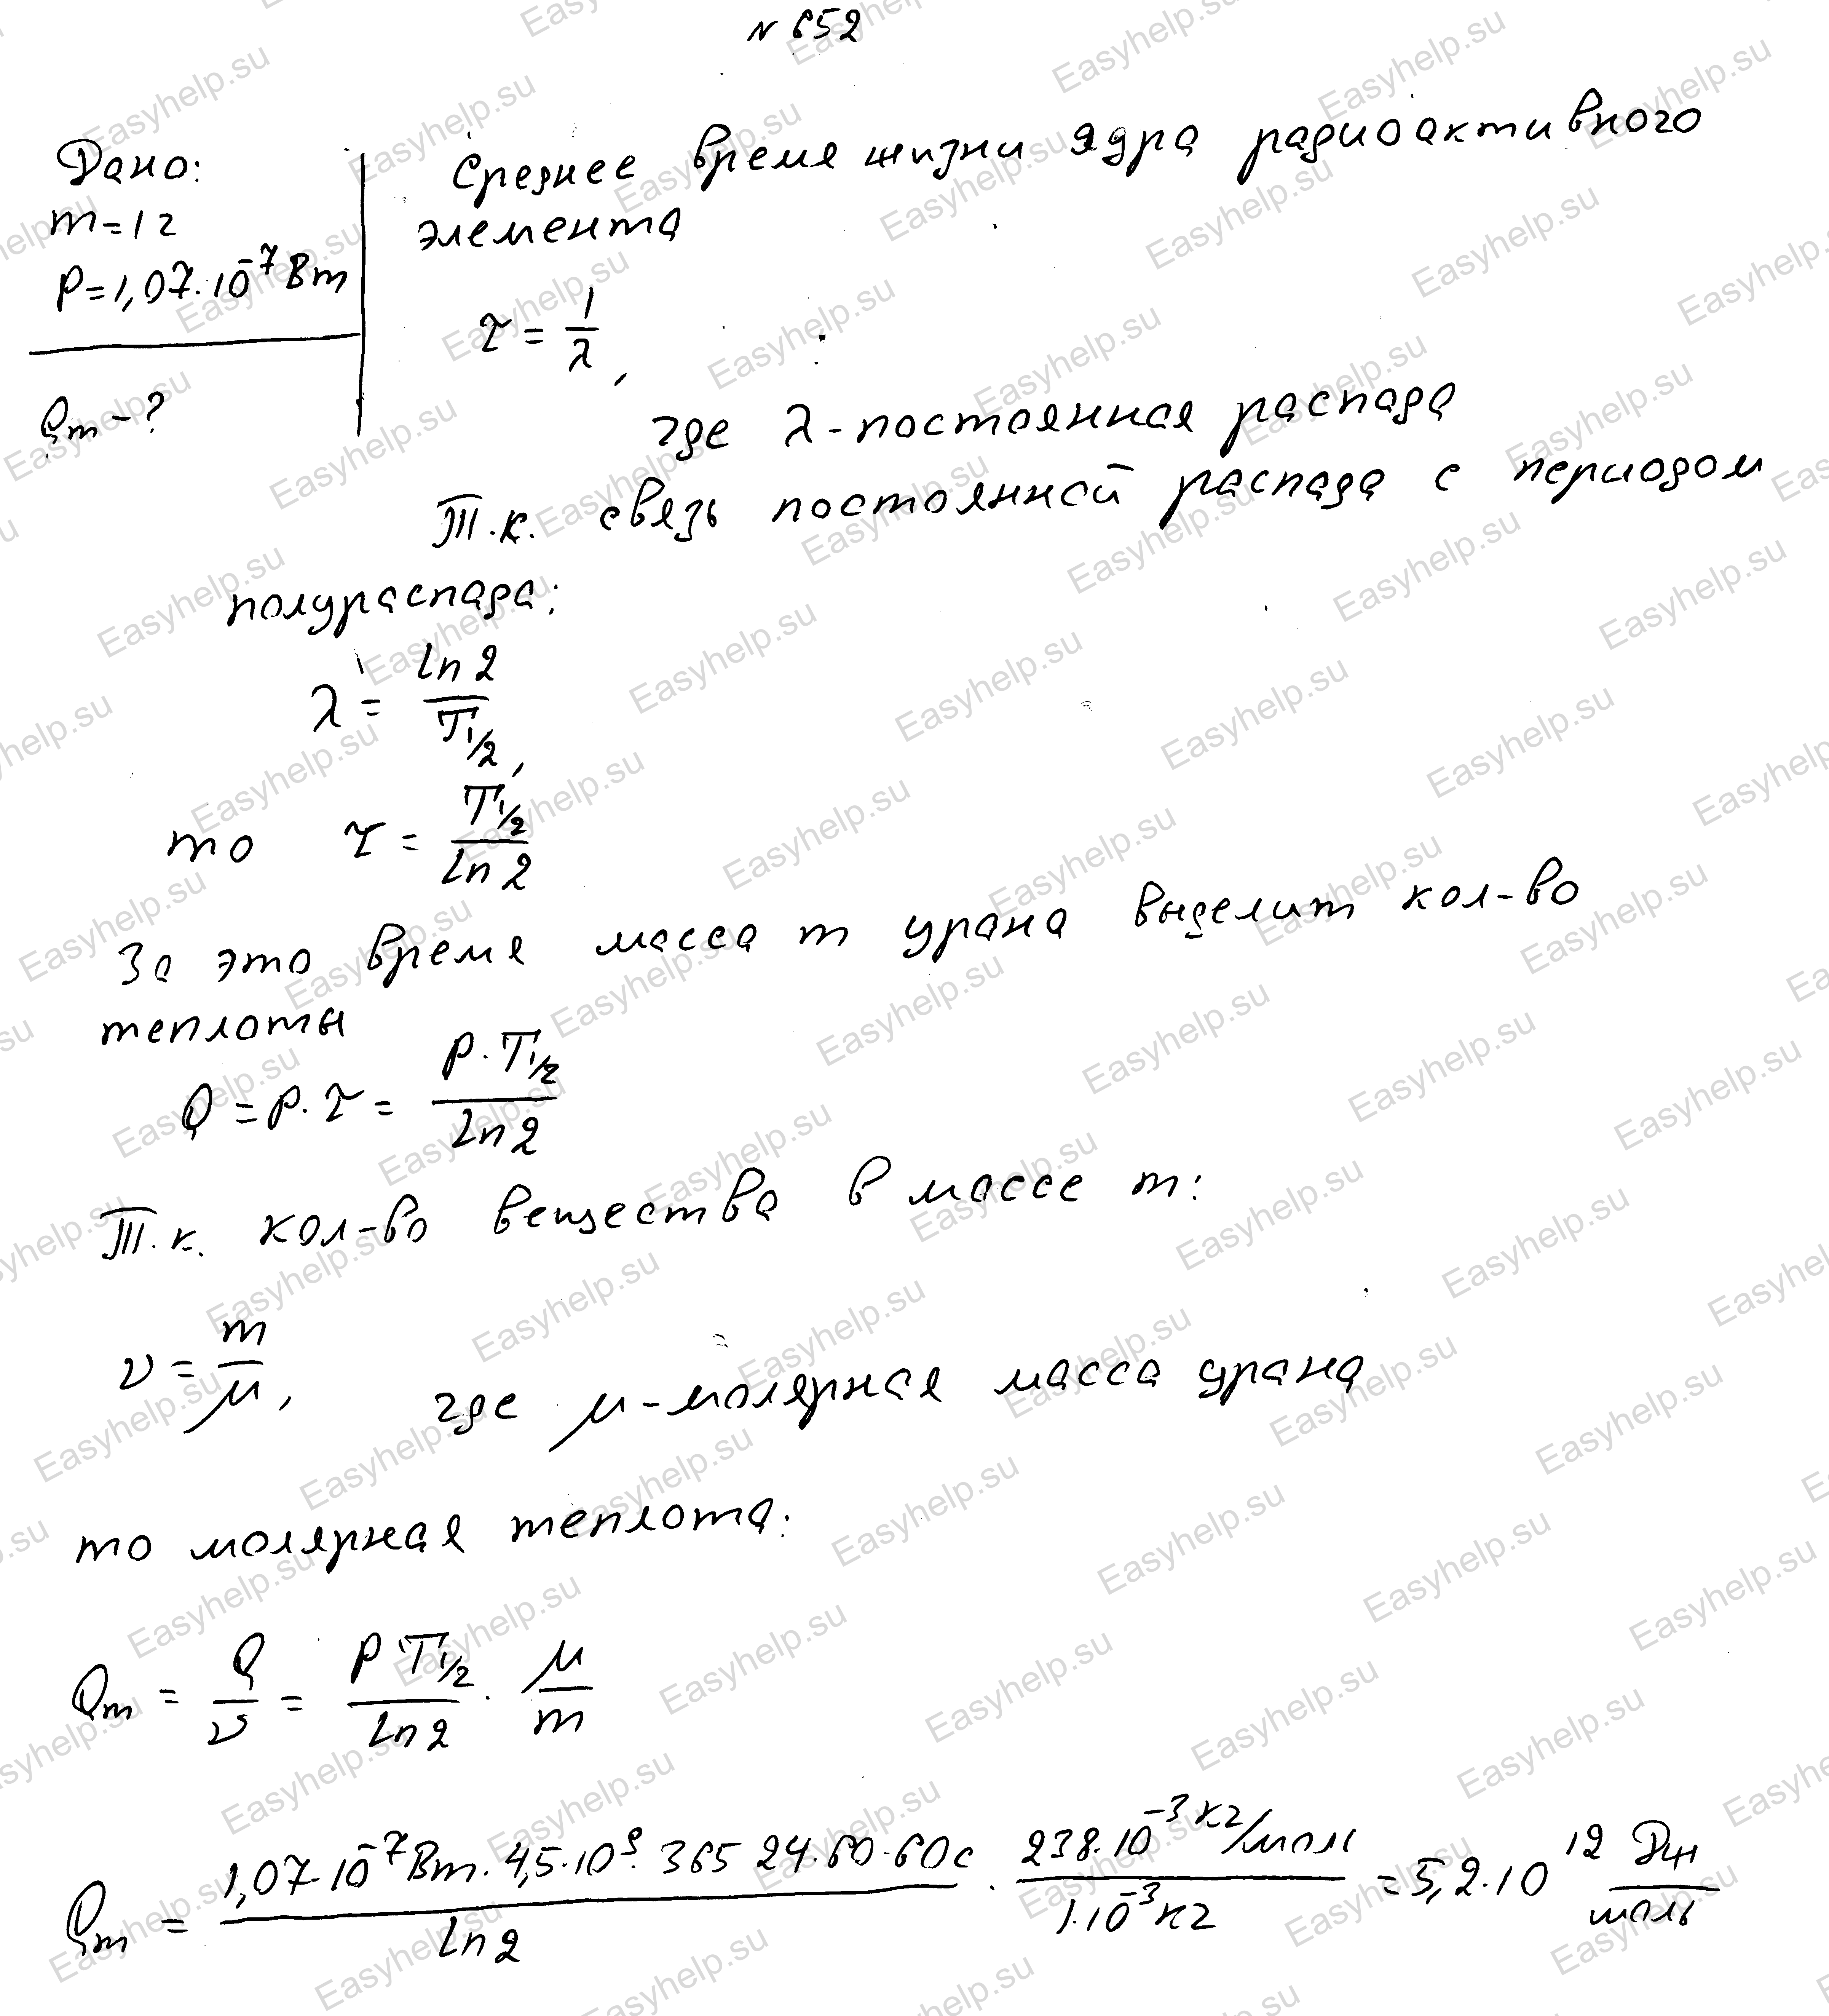 N 652
Дано:
m = 1 г
P = 1,07·10⁻⁷ Вт
Qm - ?
Среднее время жизни ядра радиоактивного
элемента
τ = 1/λ,
где λ - постоянная распада
Т.к. связь постоянной распада с периодом
полураспада:
λ = ln 2 / T1/2,
то τ = T1/2 / ln 2
За это время масса m урана выделит кол-во
теплоты
Q = P·τ = P·T1/2 / ln 2
Т.к. кол-во вещества в массе m:
ν = m/μ, где μ - молярная масса урана
то молярная теплота:
Qm = Q/ν = P T1/2 / ln 2 · μ/m
Qm = 1,07·10⁻⁷ Вт · 4,5·10⁹· 365 24·60·60 с / ln 2 · 238·10⁻³ кг/моль / 1·10⁻³ кг = 5,2·10¹² Дж/моль
Easyhelp.su